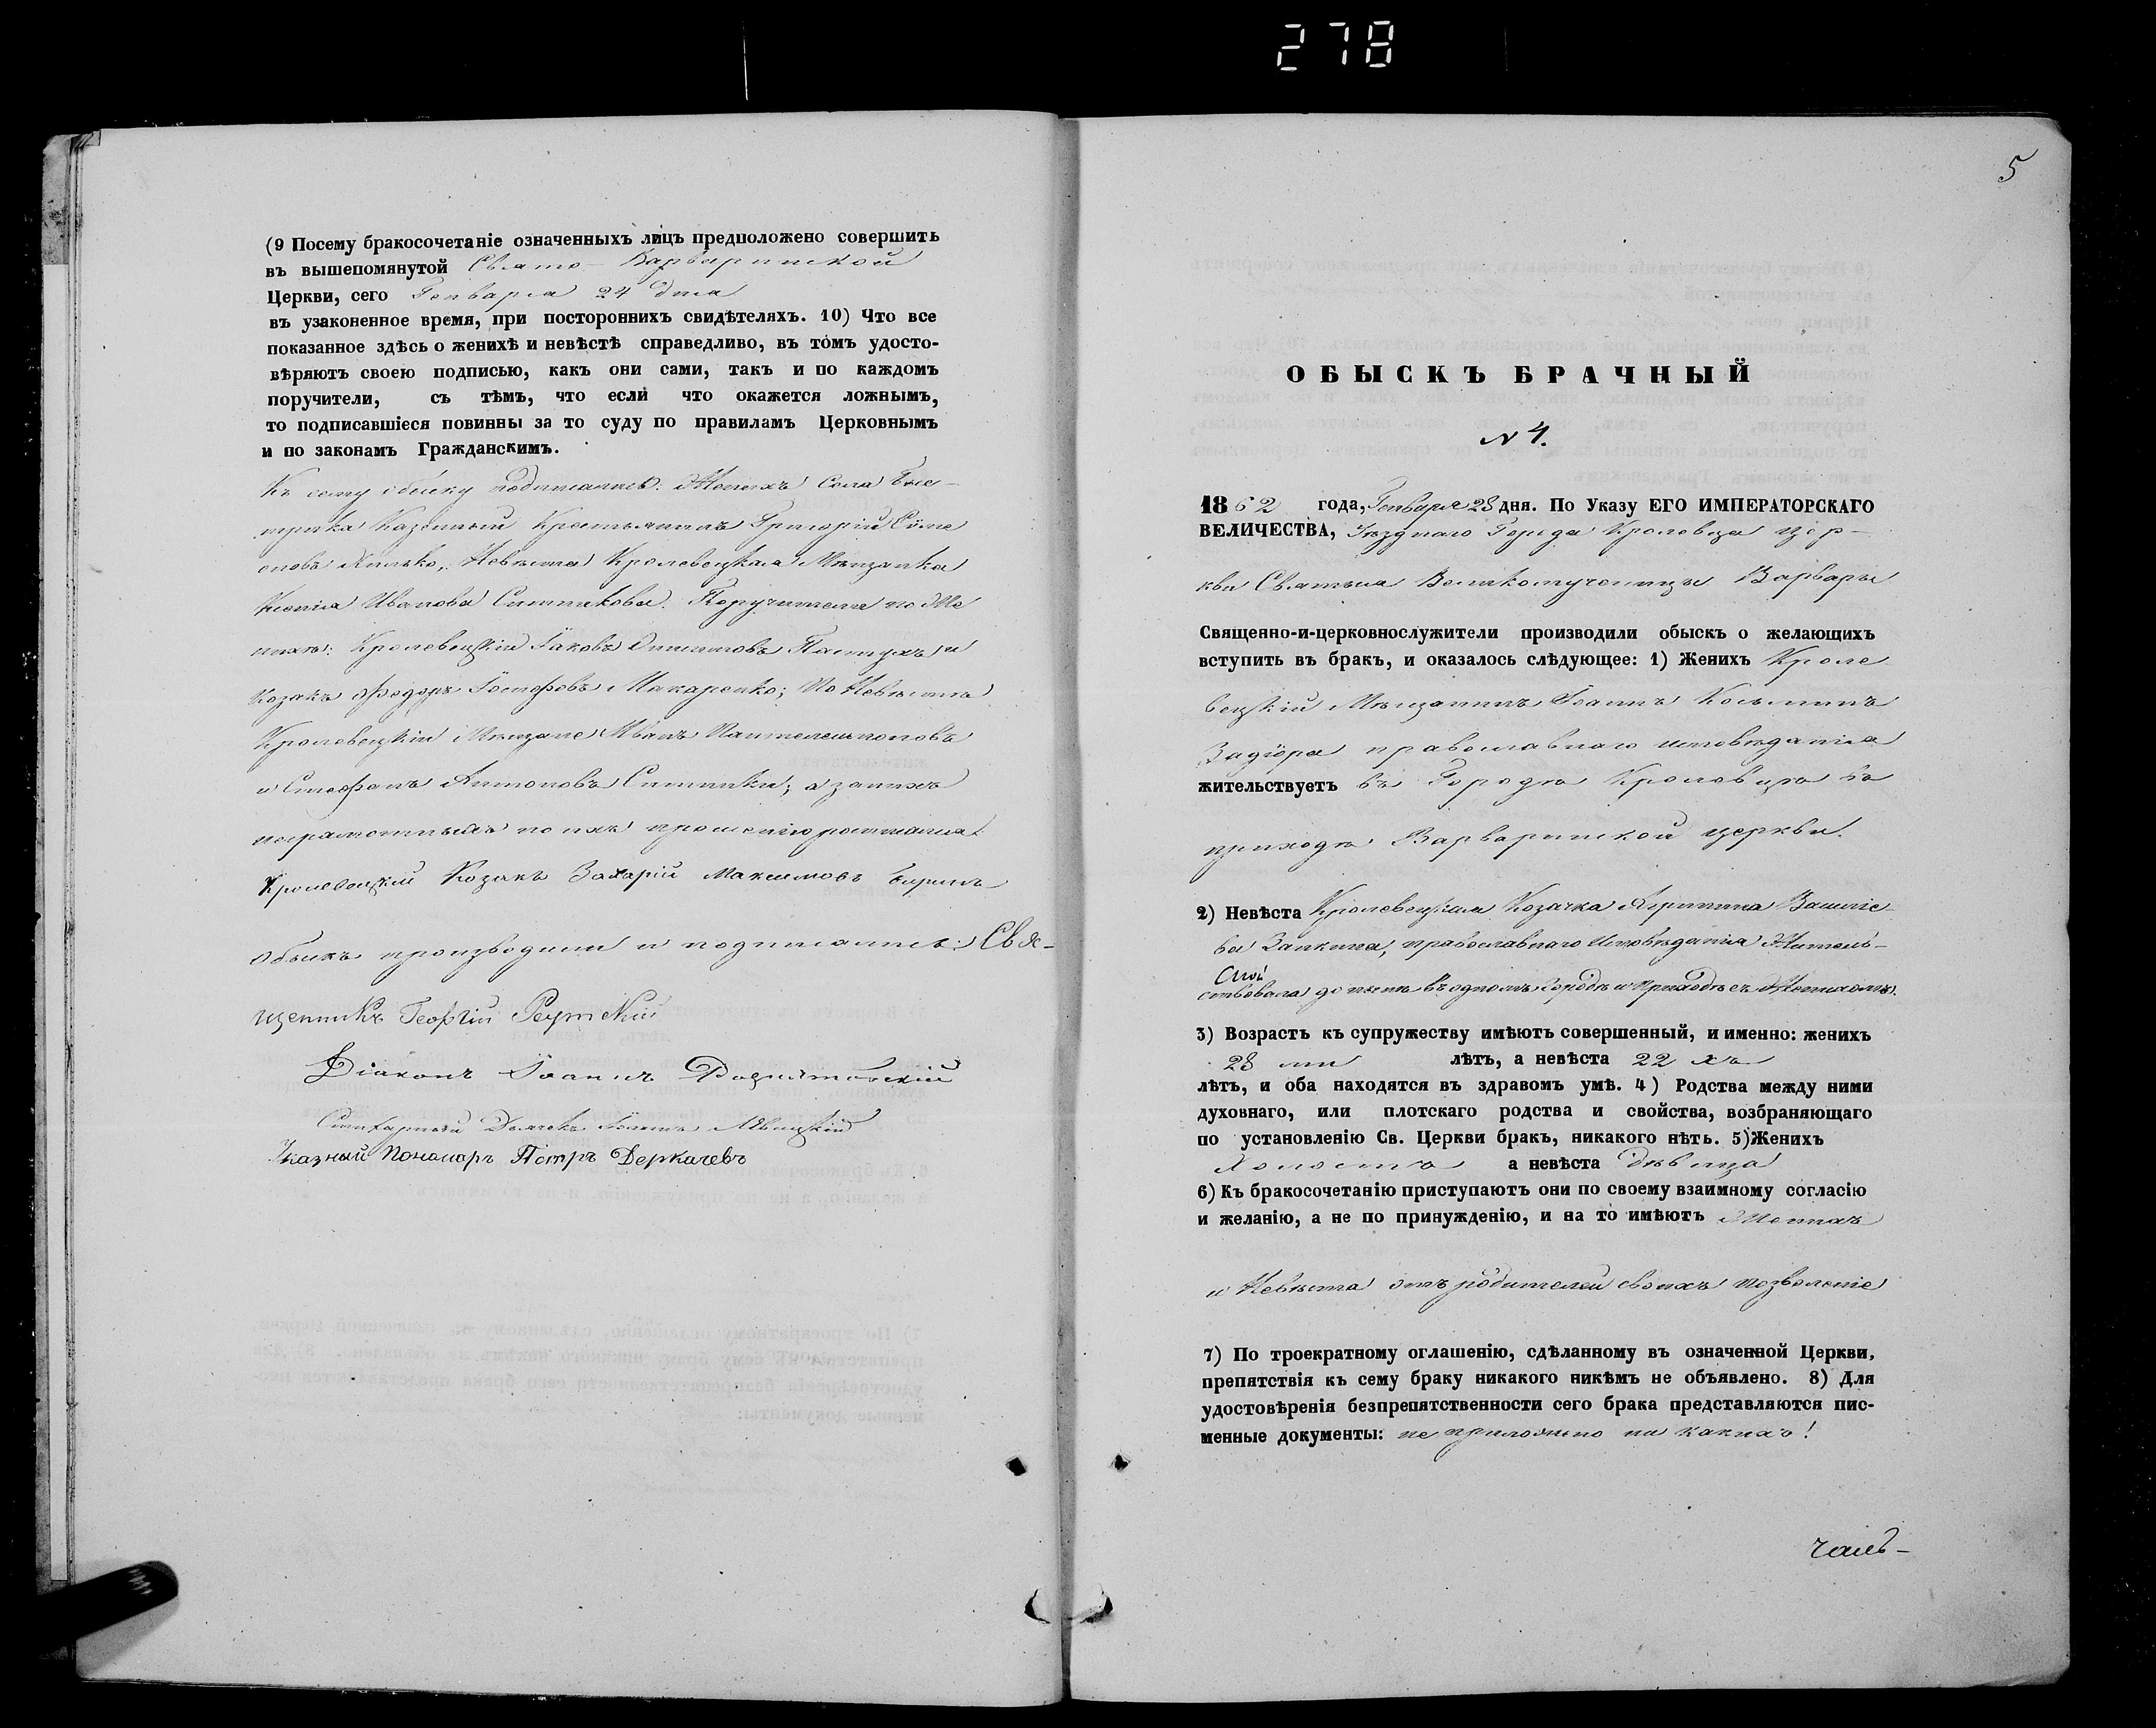 278
(9 Посему бракосочетаніе означенныхъ лицъ предположено совершить
въ вышепомянутой Свято-Варваринской
Церкви, сего Генваря 24 дня
въ узаконенное время, при постороннихъ свидѣтеляхъ. 10) Что все
показанное здѣсь о женихѣ и невѣстѣ справедливо, въ томъ удосто-
вѣряютъ своею подписью, какъ они сами, такъ и по каждомъ
поручители, съ тѣмъ, что если что окажется ложнымъ,
то подписавшіеся повинны за то суду по правиламъ Церковнымъ
и по законамъ Гражданскимъ.
Къ сему обыску подписались: Женихъ Села Бы-
стрика Казенный Крестьянинъ Григорій Симе
оновъ, Невѣста Кролевецкая Мѣщанка
Ксенія Иванова Ситникова. Поручители по Же
нихѣ: Кролевецкіи Іаковъ Пастухъ и
Козакъ Федоръ Іосифовъ Макаренко; По Невѣстѣ
Кролевецкіи Мѣщане Иванъ Пантелеимоновъ
и Стефанъ Антоновъ Ситники; а за нихъ
неграмотныхъ по ихъ прошенію росписался
Кролевецкій Козакъ Захарій Максимовъ
Обыскъ производили и подписались: Свя-
щенникъ Георгій
Діаконъ Іоаннъ
Дьячекъ Іоаннъ Львицкій
Указный Пономарь Петръ Деркачевъ
5
ОБЫСКЪ БРАЧНЫЙ
N 4.
1862 года, Генваря 28 дня. По Указу ЕГО ИМПЕРАТОРСКАГО
ВЕЛИЧЕСТВА, Уѣзднаго Города Кролевца Цер-
кви Святыя Великомученицы Варвары
Священно-и-церковнослужители производили обыскъ о желающихъ
вступить въ бракъ, и оказалось слѣдующее: 1) Женихъ Кроле
вецкій Мѣщанинъ Іоаннъ Косминъ
Задіора православнаго исповѣданія
жительствуетъ въ Городѣ Кролевцѣ въ
приходѣ Варваринской церкви.
2) Невѣста Кролевецкая Козачка Агрипина Василіе
ва Запкина, православнаго Исповѣданія Житель-
ствовала до нынѣ въ одномъ Городѣ и Приходѣ съ Женихомъ.
3) Возрастъ къ супружеству имѣютъ совершенный, и именно: женихъ
28 ми лѣтъ, а невѣста 22 хъ
лѣтъ, и оба находятся въ здравомъ умѣ. 4) Родства между ними
духовнаго, или плотскаго родства и свойства, возбраняющаго
по установленію Св. Церкви бракъ, никакого нѣтъ. 5) Женихъ
Холостъ а невѣста Дѣвица
6) Къ бракосочетанію приступаютъ они по своему взаимному согласію
и желанію, а не по принужденію, и на то имѣютъ Женихъ
и Невѣста отъ родителей своихъ позволеніе
7) По троекратному оглашенію, сдѣланному въ означенной Церкви,
препятствія къ сему браку никакого никѣмъ не объявлено. 8) Для
удостовѣренія безпрепятственности сего брака представляются пис-
менные документы: не приложено ни какихъ!